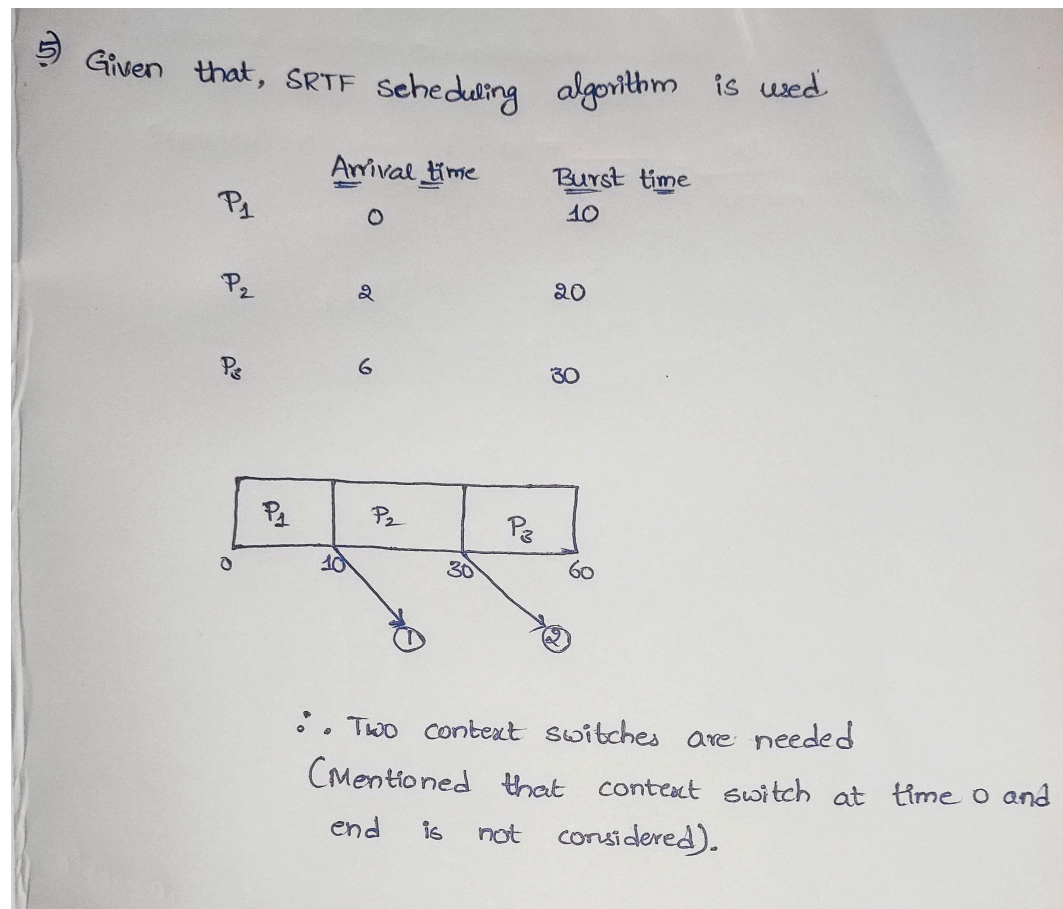 5) Given that, SRTF scheduling algorithm is used
Arrival time Burst time
P1 0 10
P2 2 20
P3 6 30
P1 P2 P3
0 10 30 60
① ②
∴ Two context switches are needed
(Mentioned that context switch at time 0 and
end is not considered).